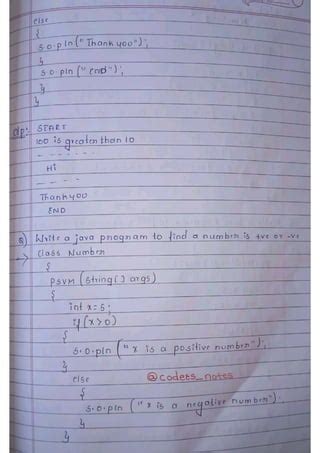 else
{
S.o.pln("Thank yoo");
}
S.o.pln("END");
}
}
o/p: START
100 is greater than 10
- - - - - - -
Hi
- - - -
Thank yoo
END
Q) Write a java program to find a number is +ve or -ve
-> Class Number
{
PSVM (String[] args)
{
int x=5;
if(x>0)
{
S.o.pln("x is a positive number");
}
else
@coders_notes
{
S.o.pln("x is a negative number");
}
}